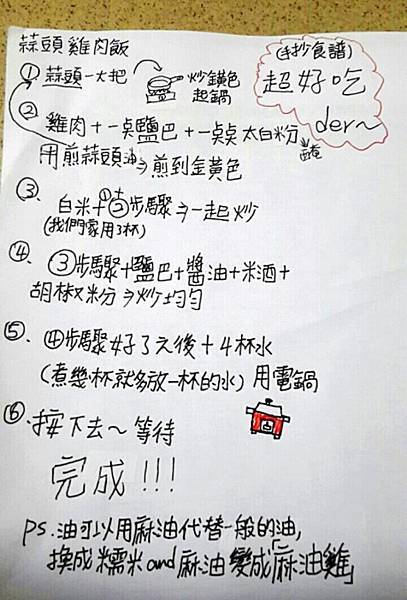 蒜頭雞肉飯
(手抄食譜)
超好吃
der~
① 蒜頭一大把
炒金黃色
起鍋
② 雞肉+一點鹽巴+一點點太白粉
醃
用煎蒜頭油⇒煎到金黃色
③ 白米+①+②步驟⇒一起炒
(我們家用3杯)
④ ③步驟+鹽巴+醬油+米酒+
胡椒粉⇒炒均勻
⑤ ④步驟好了之後+4杯水
(煮幾杯就多放一杯的水) 用電鍋
⑥ 按下去~等待
完成!!!
ps.油可以用麻油代替一般的油,
換成糯米and麻油變成「麻油雞」